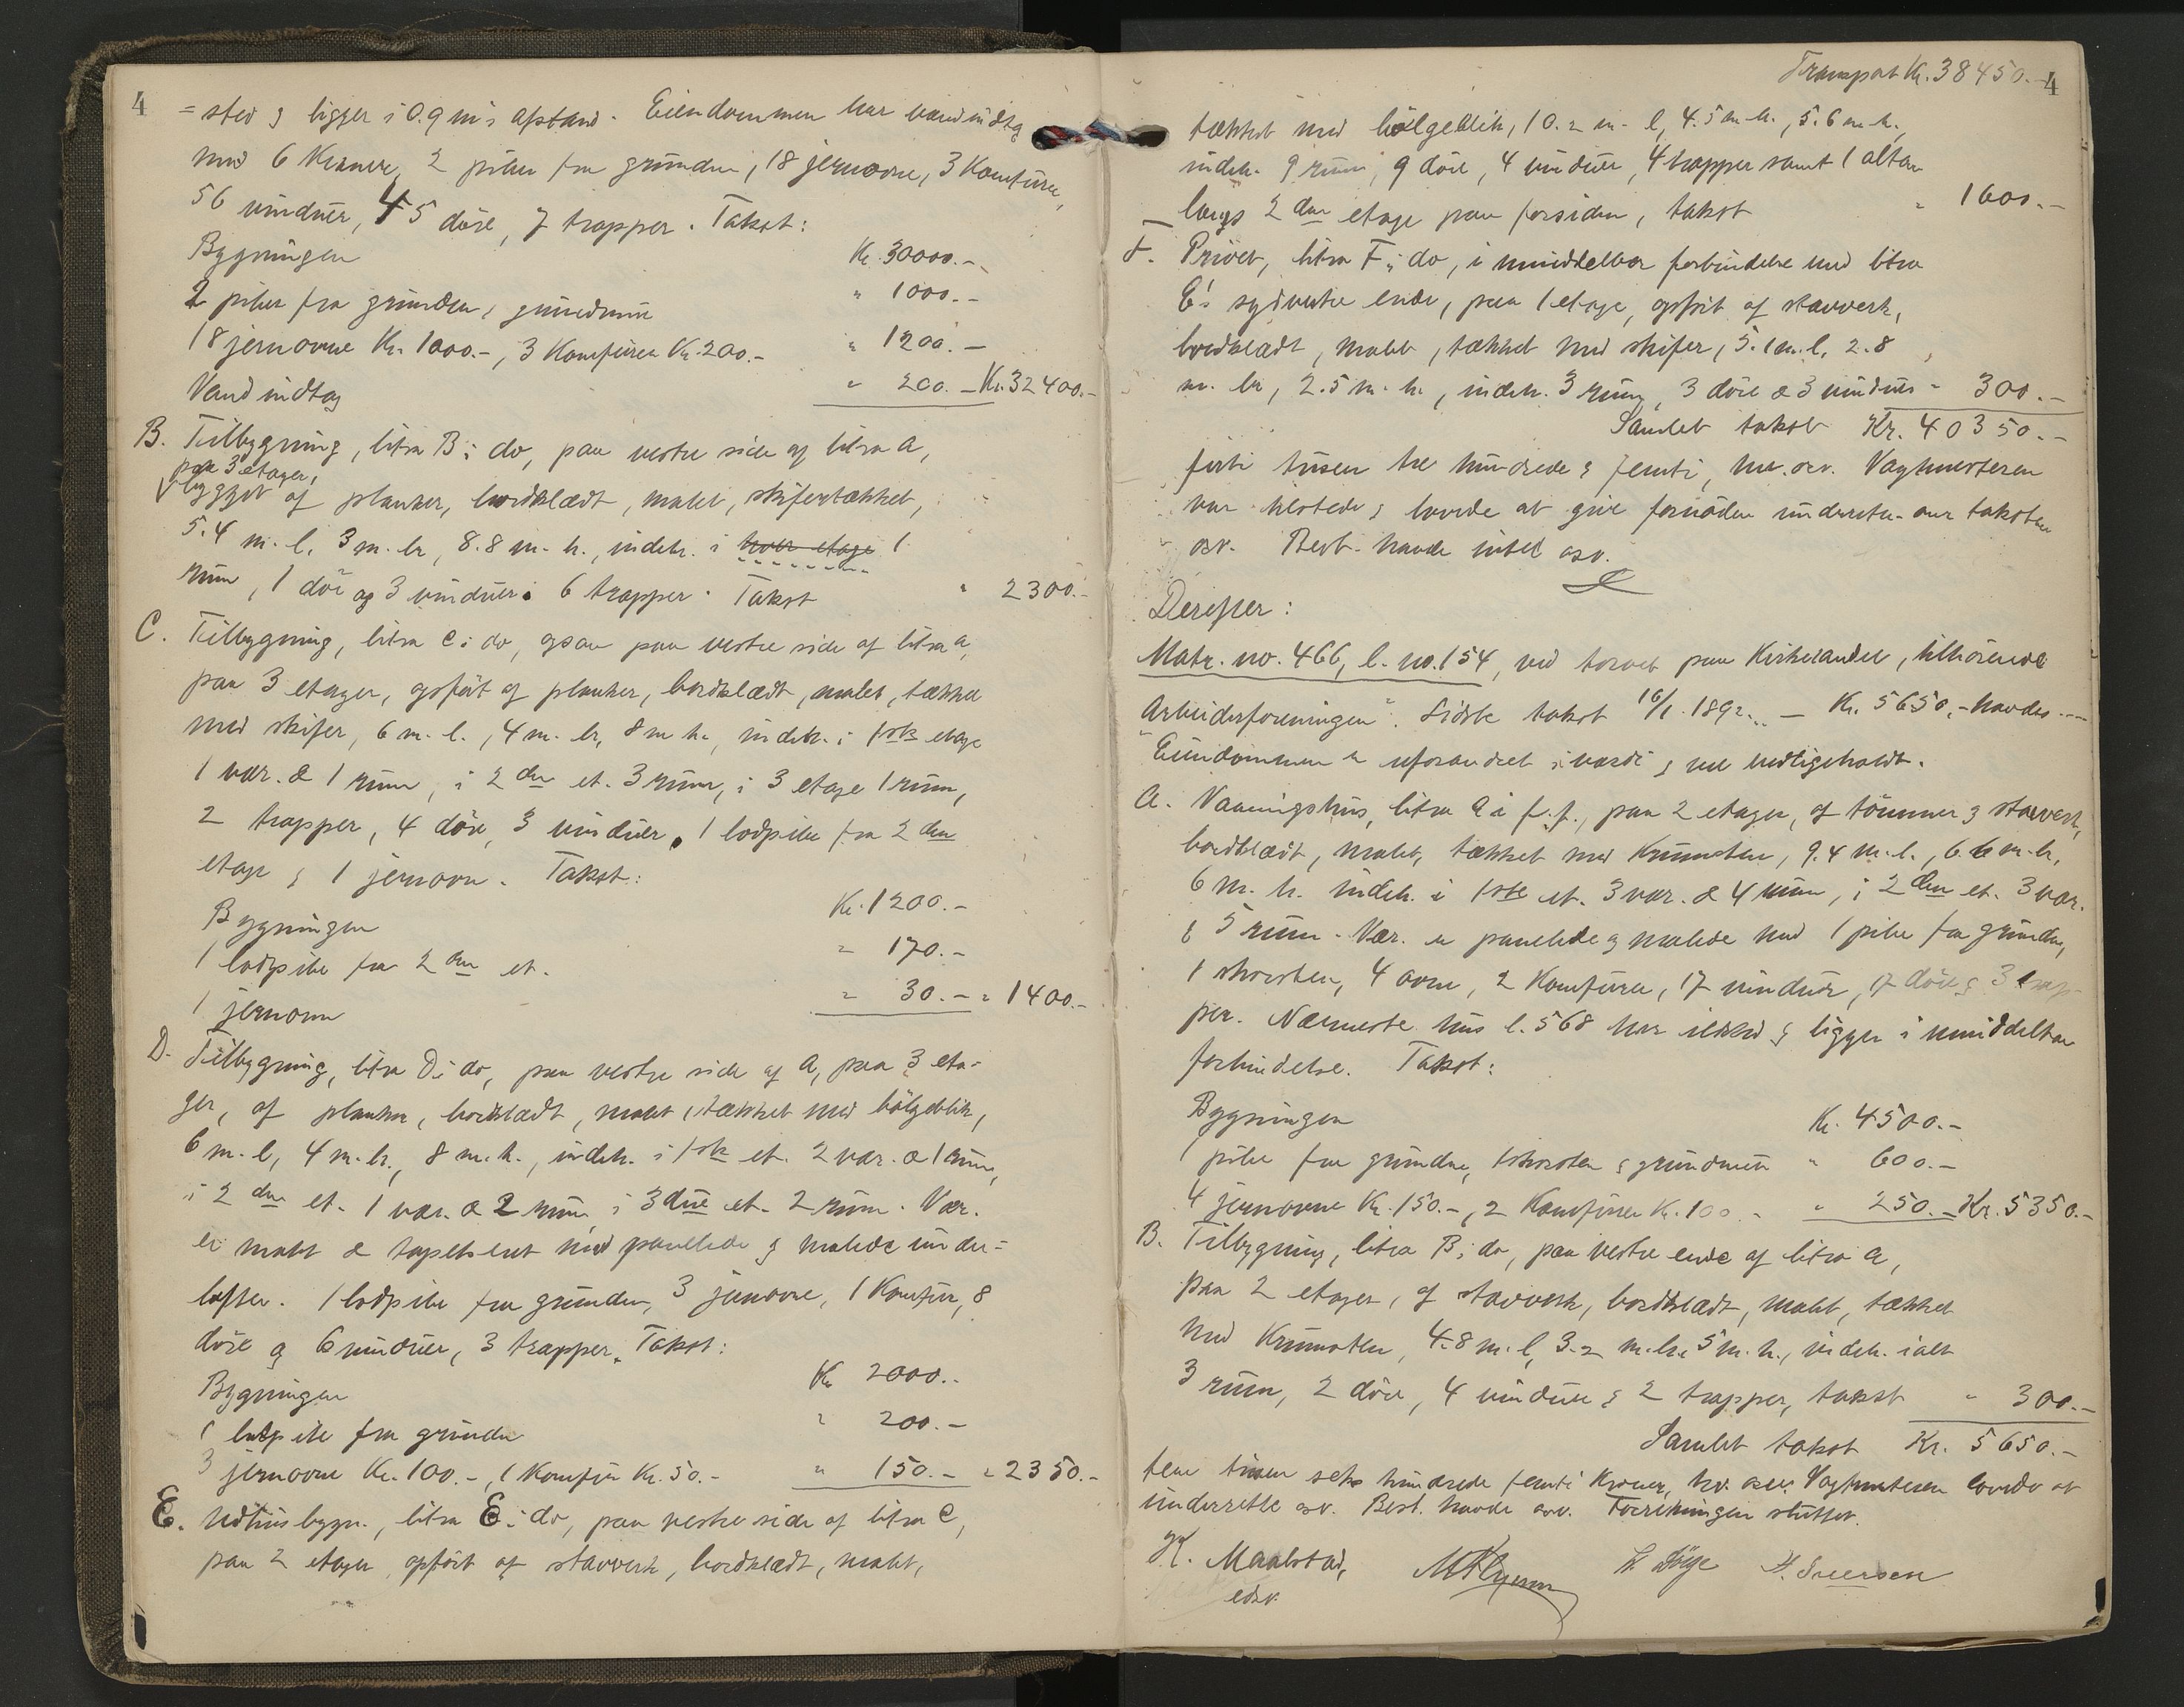 4
= sted & ligger i 0.9 m's afstand. Eiendommen har vandindtag
med 6 kraner, 2 piber fra grunden, 18 jernovne, 3 komfurer,
56 vinduer, 45 döre, 7 trapper. Takst:
Bygningen Kr. 30000.-
2 piber fra grunden, grundmur " 1000.-
18 jernovne Kr. 1000.-, 3 Komfurer Kr. 200.- " 1200.-
Vandindtag " 200.- Kr. 32400.-
B. Tilbygning, litra B i do, paa vestre side af litra A,
paa 3 etager,
bygget af planker, bordklædt, malet, skifertækket,
5.4 m. l., 3 m. br, 8.8 m. h., indeh. i hver etage 1
rum, 1 dör og 3 vinduer. 6 trapper. Takst " 2300.-
C. Tilbygning, litra C i do, ogsaa paa vestre side af litra A,
paa 3 etager, opfört af planker, bordklædt, malet, tækket
med skifer, 6 m. l., 4 m. br, 8 m h., indeh. i 1ste etage
1 vær. & 1 rum, i 2den et. 3 rum, i 3 etage 1 rum,
2 trapper, 4 döre, 3 vinduer, 1 lodpibe fra 2den
etage & 1 jernovn. Takst:
Bygningen Kr. 1200.-
1 lodpibe fra 2den et. " 170.-
1 jernovn " 30.- " 1400.-
D. Tilbygning, litra D i do, paa vestre side af A, paa 3 eta-
ger, af planker, bordklædt, malet, tækket med bölgeblik,
6 m. l, 4 m. br., 8 m. h., indeh. i 1ste et. 2 vær. & 1 rum,
i 2den et. 1 vær. & 2 rum, i 3die et. 2 rum. Vær.
er malt & tapetseret med panelede & malede under=
lofter. 1 lodpibe fra grunden, 3 jernovne, 1 Komfur, 8
döre og 6 vinduer, 3 trapper. Takst:
Bygningen Kr 2000.-
1 lodpibe fra grunden " 200.-
3 jernovne Kr. 100.-, 1 Komfur Kr. 50.- " 150.- " 2350.-
E. Udhusbygn., litra E i do, paa vestre side af litra C,
paa 2 etager, opfört af stavverk, bordklædt, malt,
Transport Kr. 38450.- 4
tækket med bölgeblik, 10.2 m. l, 4.5 m. br., 5.6 m. h.,
indeh. 9 rum, 9 döre, 4 vinduer, 4 trapper samt 1 altan
langs 2den etage paa forsiden, takst " 1600.-
F. Privet, litra F i do, i umiddelbar forbindelse med litra
E's sydvestre ende, paa 1 etage, opfört af stavverk,
bordklædt, malet, tækket med skifer, 5.1 m. l, 2.8
m. br, 2.5 m. h., indeh. 3 rum, 3 döre & 3 vinduer " 300.-
Samlet takst Kr. 40350.-
firti tusen tre hundrede & femti, kr. osv. Vagtmesteren
var tilstede & lovede at give fornöden underretn. om taksten
osv. Best. havde intet osv.
Derefter:
Matr. no. 466, l. no. 154, ved torvet paa Kirkelandet, tilhörende
"Arbeiderforeningen". Sidste takst 16/1. 1892... - Kr. 5650,- havdes ...
Eiendommen er uforandret i værdi & vel vedligeholdt.
A. Vaaningshus, litra A i f. f., paa 2 etager, af tömmer & stavverk,
bordklædt, malet, tækket med Krumsten, 9.4 m. l., 6.6 m. br,
6 m. h. indeh. i 1ste et. 3 vær. & 4 rum, i 2den et. 3 vær.
& 5 rum. Vær. er panelede & malede med 1 pibe fra grunden,
1 skorsten, 4 ovne, 2 Komfurer, 17 vinduer, 17 döre & 3 trap-
per. Nærmeste hus l. 568 har ildsted & ligger i umiddelbar
forbindelse. Takst:
Bygningen Kr. 4500.-
1 pibe fra grunden, 1 skorsten & grundmur " 600.-
4 jernovne Kr. 150.-, 2 Komfurer Kr. 100.- " 250.- Kr. 5350.-
B. Tilbygning, litra B i do, paa vestre ende af litra A,
paa 2 etager, af stavverk, bordklædt, malet, tækket
med Krumsten, 4.8 m. l, 3.2 m. br. 5 m. h., indeh. ialt
3 rum, 2 döre, 4 vinduer & 2 trapper, takst " 300.-
Samlet takst Kr. 5650.-
fem tusen seks hundrede femti Kroner, kr. osv. Vagtmesteren lovede at
underrette osv. Best. havde osv. Forretningen sluttet.
K. Maalstad,
edsv.
H. Iversen